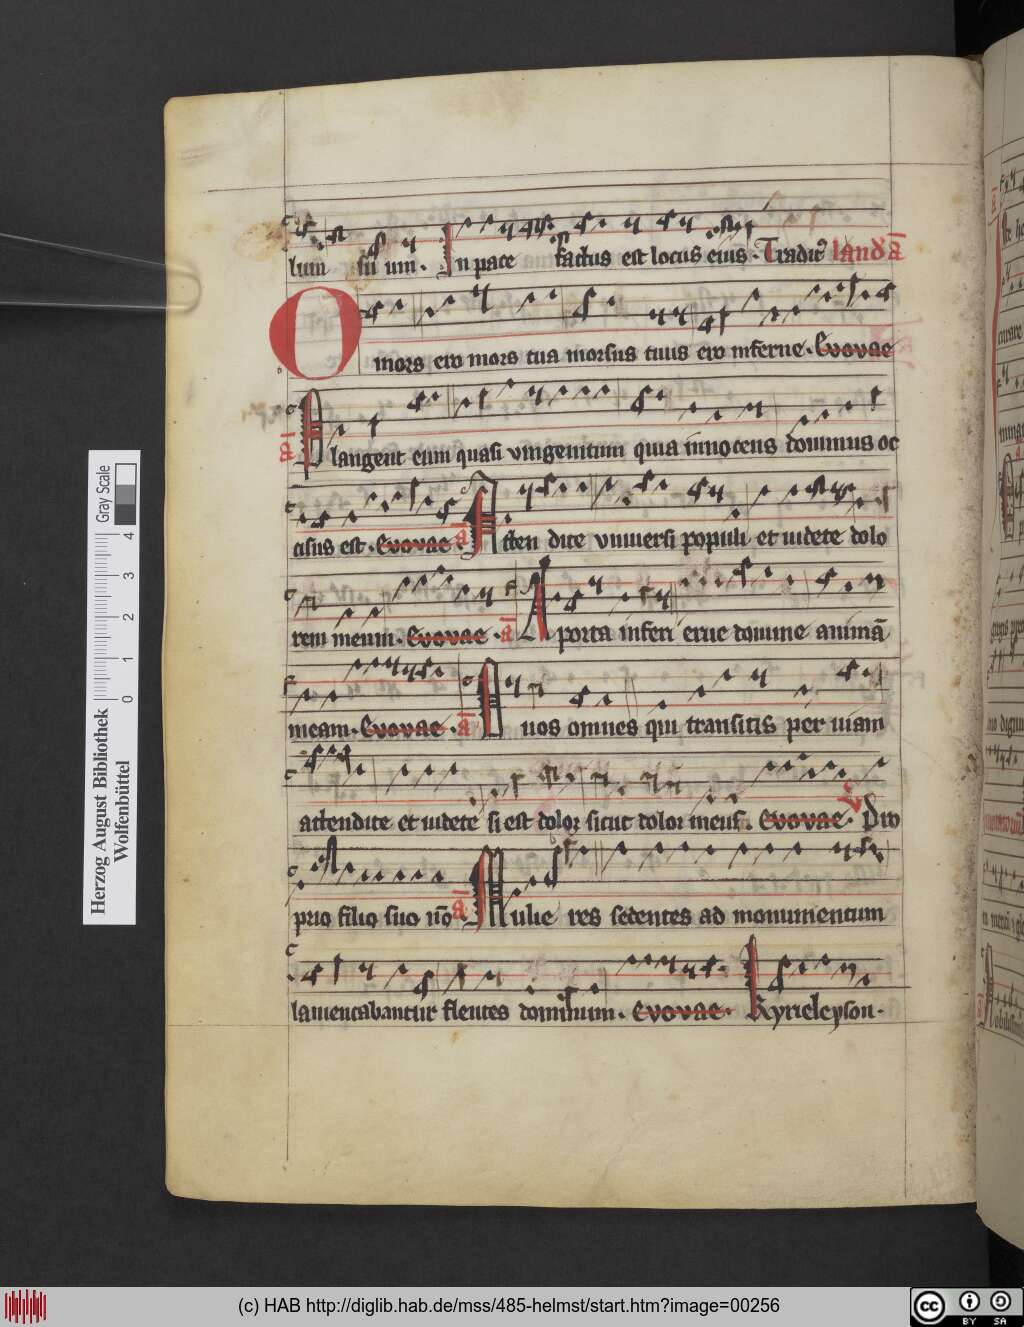 lum suum. In pace factus est locus eius. Tradit laud a
O mors ero mors tua morsus tuus ero inferne. Evovae
a Plangent eum quasi vnigenitum quia innocens dominus oc
cisus est. Evovae. a Atten dite vniuersi populi et uidete dolo
rem meum. Evovae. a A porta inferi erue domine animā
meam. Evovae. a O uos omnes qui transitis per uiam
attendite et uidete si est dolor sicut dolor meus. Evovae. Pro
prio filio suo nō a Mulie res sedentes ad monumentum
lamentabantur flentes dominum. Evovae. Kyrieleyson.
Herzog August Bibliothek
Wolfenbüttel
0 1 2 3 4
Gray Scale
(c) HAB http://diglib.hab.de/mss/485-helmst/start.htm?image=00256
cc BY SA